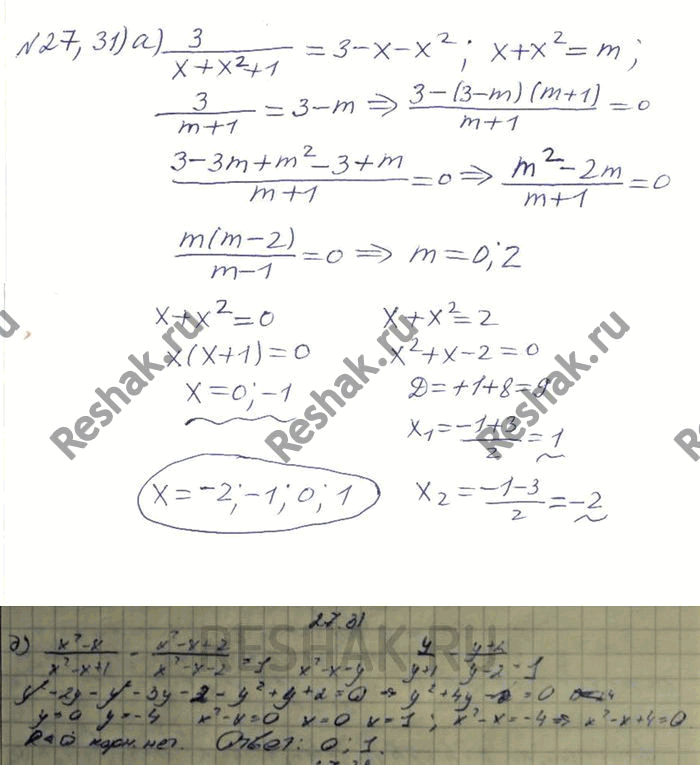 №27,31) а) 3/(x+x²+1) = 3-x-x²; x+x²=m;
3/(m+1) = 3-m ⇒ (3-(3-m)(m+1))/(m+1) = 0
(3-3m+m²-3+m)/(m+1) = 0 ⇒ (m²-2m)/(m+1) = 0
m(m-2)/(m-1) = 0 ⇒ m=0;2
x+x²=0
x(x+1)=0
x=0;-1
x+x²=2
x²+x-2=0
D=+1+8=9
x₁=(-1+3)/2=1
x₂=(-1-3)/2=-2
x=-2;-1;0;1
Reshak.ru Reshak.ru Reshak.ru
27.31
RESHAK.RU
(x²-x)/(x²-x+1) - (x²-x+2)/(x²-x-2) = 1 x²-x=y y/(y+1) - (y+2)/(y-2) = 1
y²-2y-y²-3y-2-y²+y+2=0 ⇒ y²+4y = 0
y=0 y=-4 x²-x=0 x=0 x=1; x²-x=-4 ⇒ x²-x+4=0
корн. нет. Ответ: 0; 1.